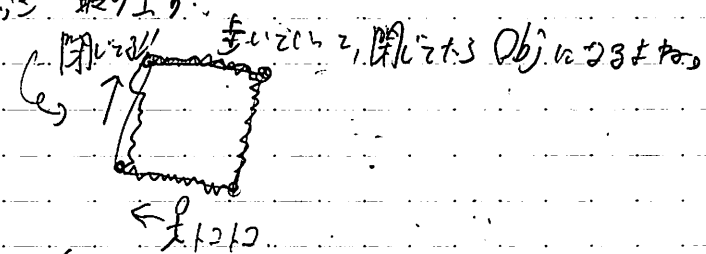 取り上げ.
閉じてる!! 歩いていって, 閉じてたら Objになるよね。
← トコトコ